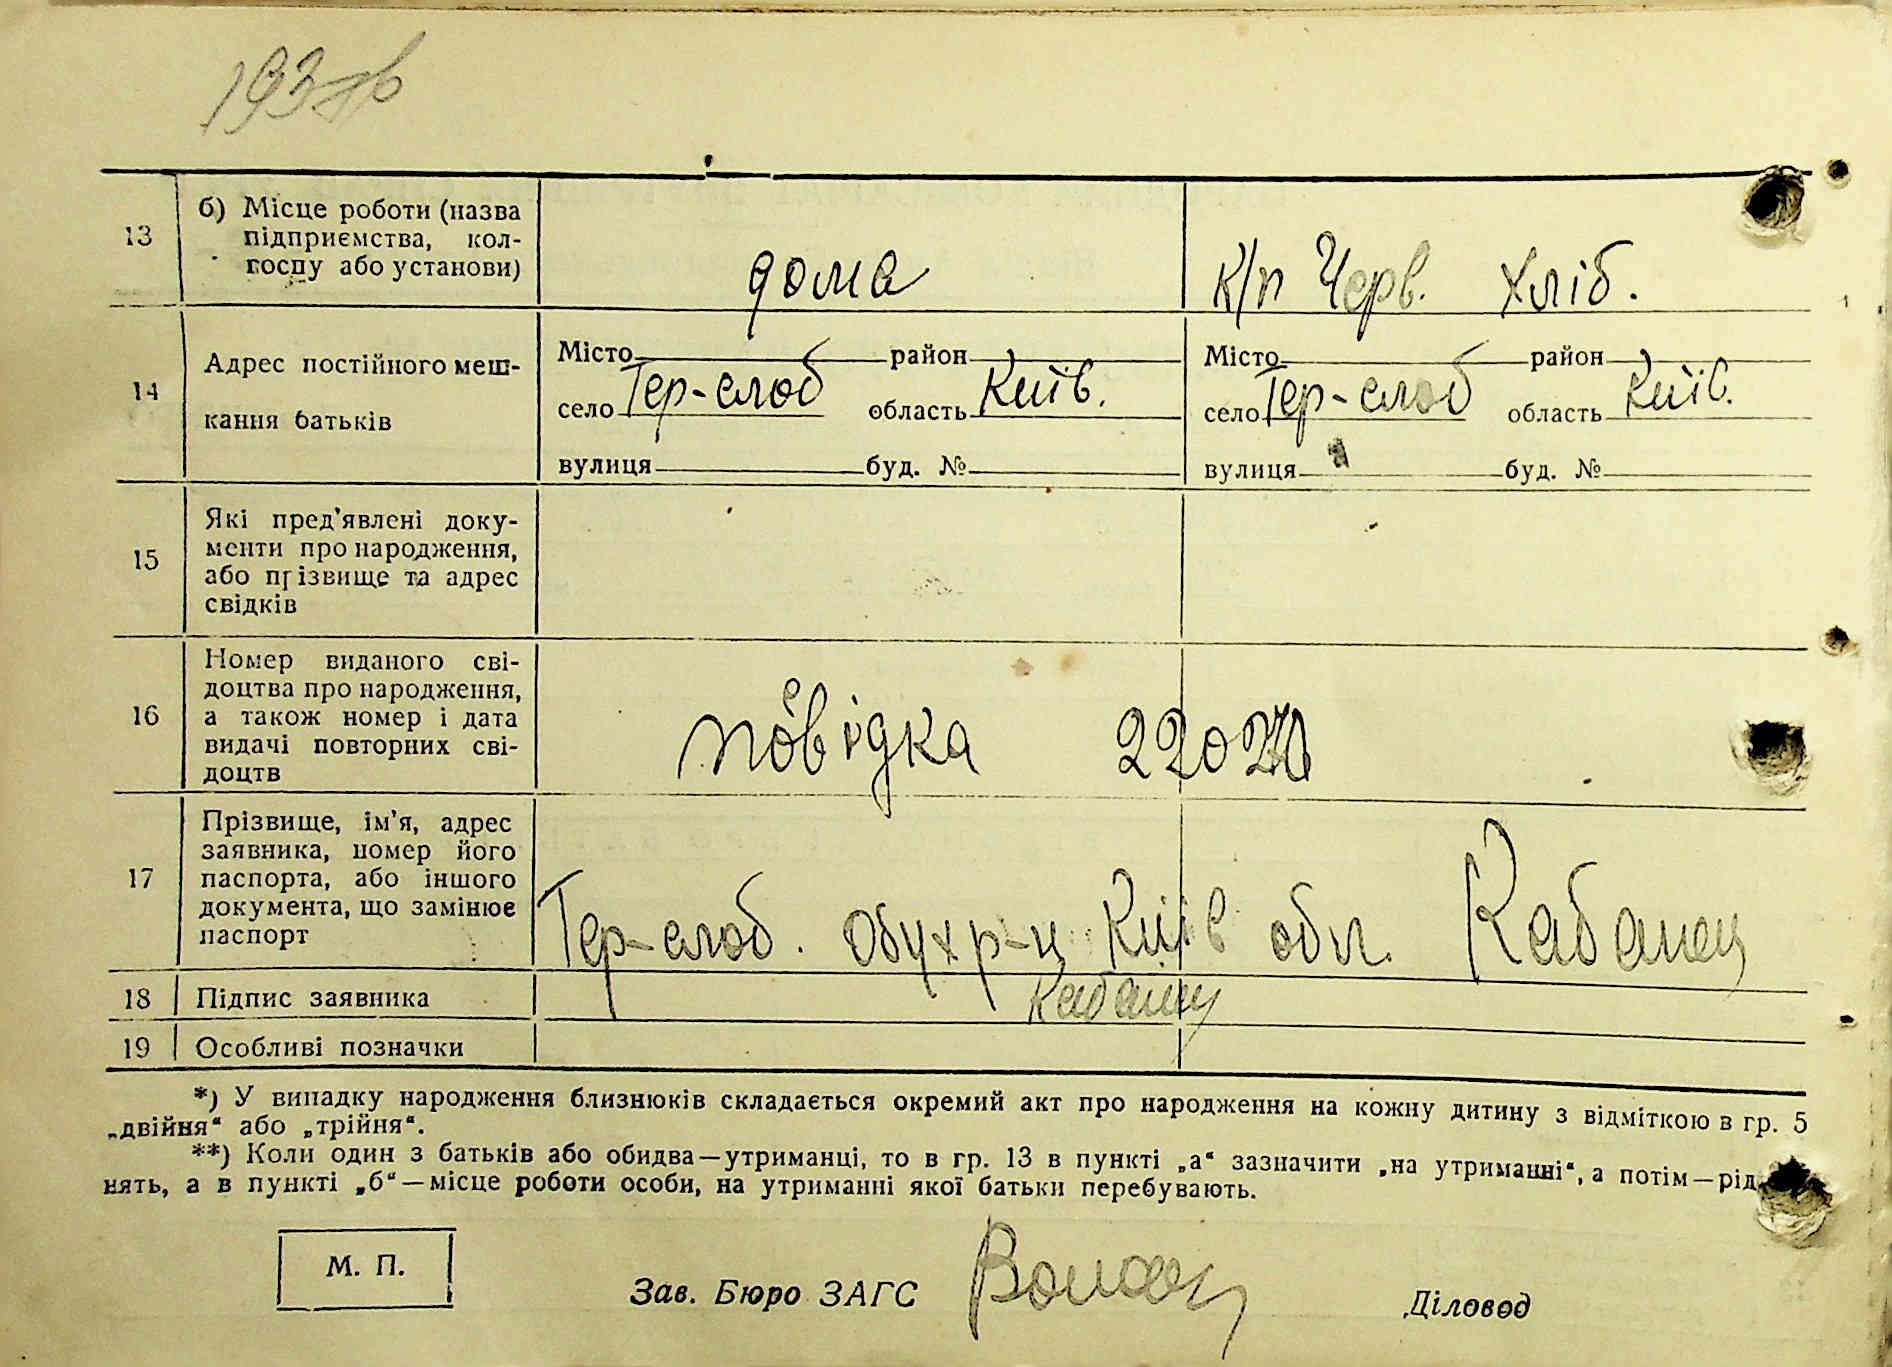 13
б) Місце роботи (назва
підприємства, кол-
госпу або установи)
дома
к/п Черв. Хліб.
14
Адрес постійного меш-
кання батьків
Місто район
село Тер-слоб область Київ.
вулиця буд. №
Місто район
село Тер-слоб область Київ.
вулиця буд. №
15
Які пред'явлені доку-
менти про народження,
або прізвище та адрес
свідків
16
Номер виданого сві-
доцтва про народження,
а також номер і дата
видачі повторних сві-
доцтв
17
Прізвище, ім'я, адрес
заявника, номер його
паспорта, або іншого
документа, що замінює
паспорт
Тер-слоб. Обух р-н Київ обл. Кабанец
18 Підпис заявника
Кабанец
19 Особливі позначки
*) У випадку народження близнюків складається окремий акт про народження на кожну дитину з відміткою в гр. 5
„двійня“ або „трійня“.
**) Коли один з батьків або обидва—утриманці, то в гр. 13 в пункті „а“ зазначити „на утриманні“, а потім—рід
нять, а в пункті „б“—місце роботи особи, на утриманні якої батьки перебувають.
М. П.
Зав. Бюро ЗАГС
Діловод